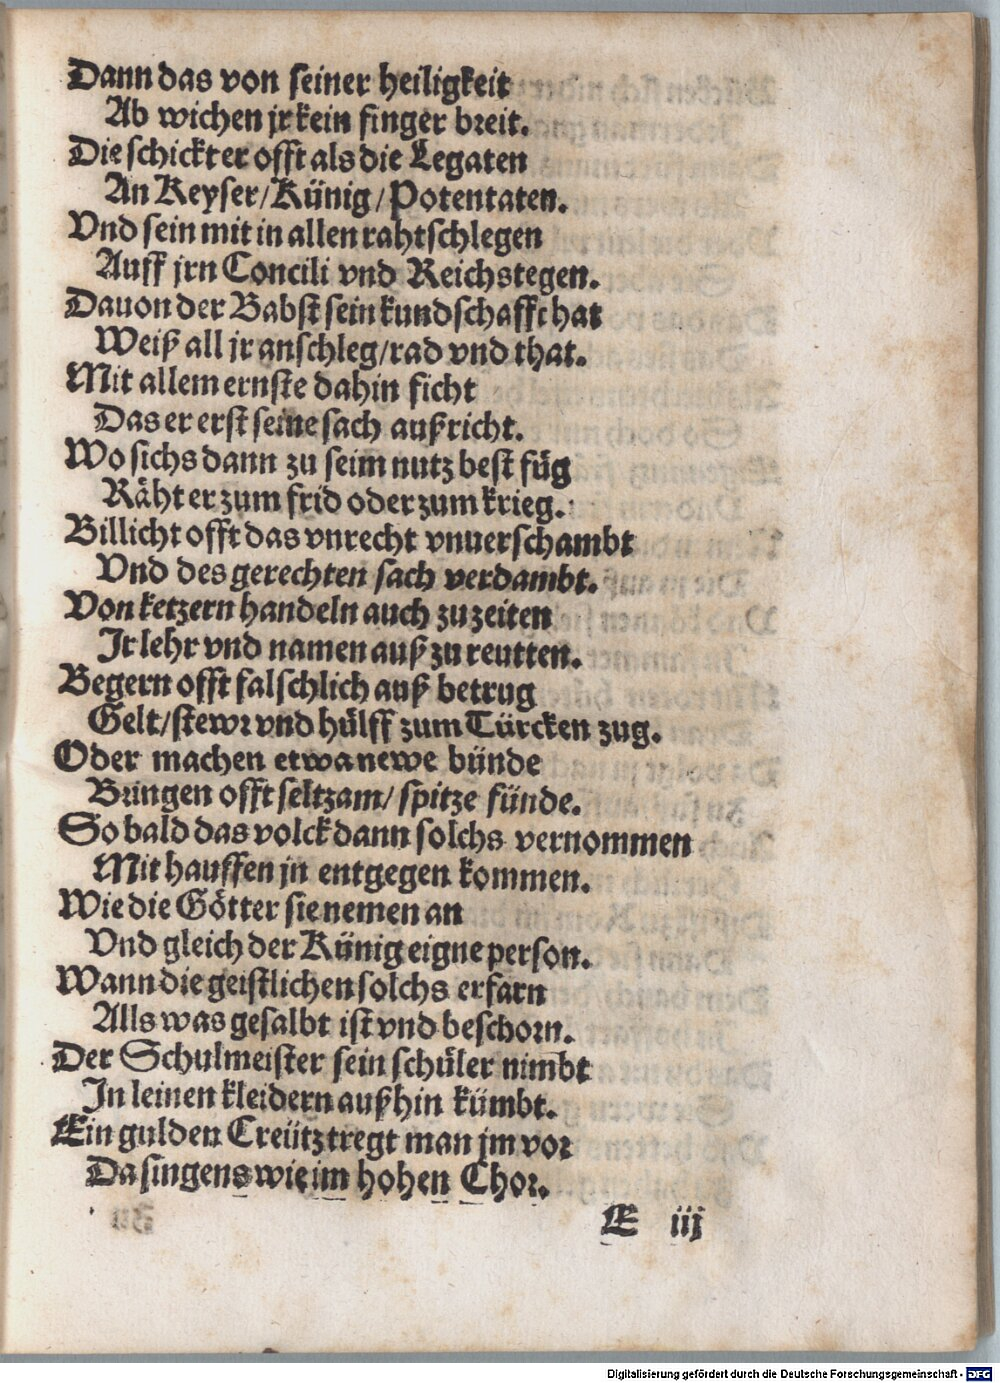 Dann das von seiner heiligkeit
Ab wichen jr kein finger breit.
Die schickt er offt als die Legaten
An Keyser/Künig/Potentaten.
Vnd sein mit in allen rahtschlegen
Auff jrn Concili vnd Reichstegen.
Dauon der Babst sein kundschafft hat
Weiß all jr anschleg/rad vnd that.
Mit allem ernste dahin ficht
Das er erst seine sach außricht.
Wo sichs dann zu seim nutz best füg
Räht er zum frid oder zum krieg.
Billicht offt das vnrecht vnuerschambt
Vnd des gerechten sach verdambt.
Von ketzern handeln auch zuzeiten
Jr lehr vnd namen auß zu reutten.
Begern offt falschlich auß betrug
Gelt/stewr vnd hülff zum Türcken zug.
Oder machen etwa newe bünde
Bringen offt seltzam/ spitze fünde.
So bald das volck dann solchs vernommen
Mit hauffen jn entgegen kommen.
Wie die Götter sie nemen an
Vnd gleich der Künig eigne person.
Wann die geistlichen solchs erfarn
Alls was gesalbt ist vnd beschorn.
Der Schulmeister sein schüler nim̄bt
In leinen kleidern außhin kümbt.
Ein gulden Creütz tregt man jm vor
Da singens wie im hohen Chor.
E iij
Digitalisierung gefördert durch die Deutsche Forschungsgemeinschaft - DFG